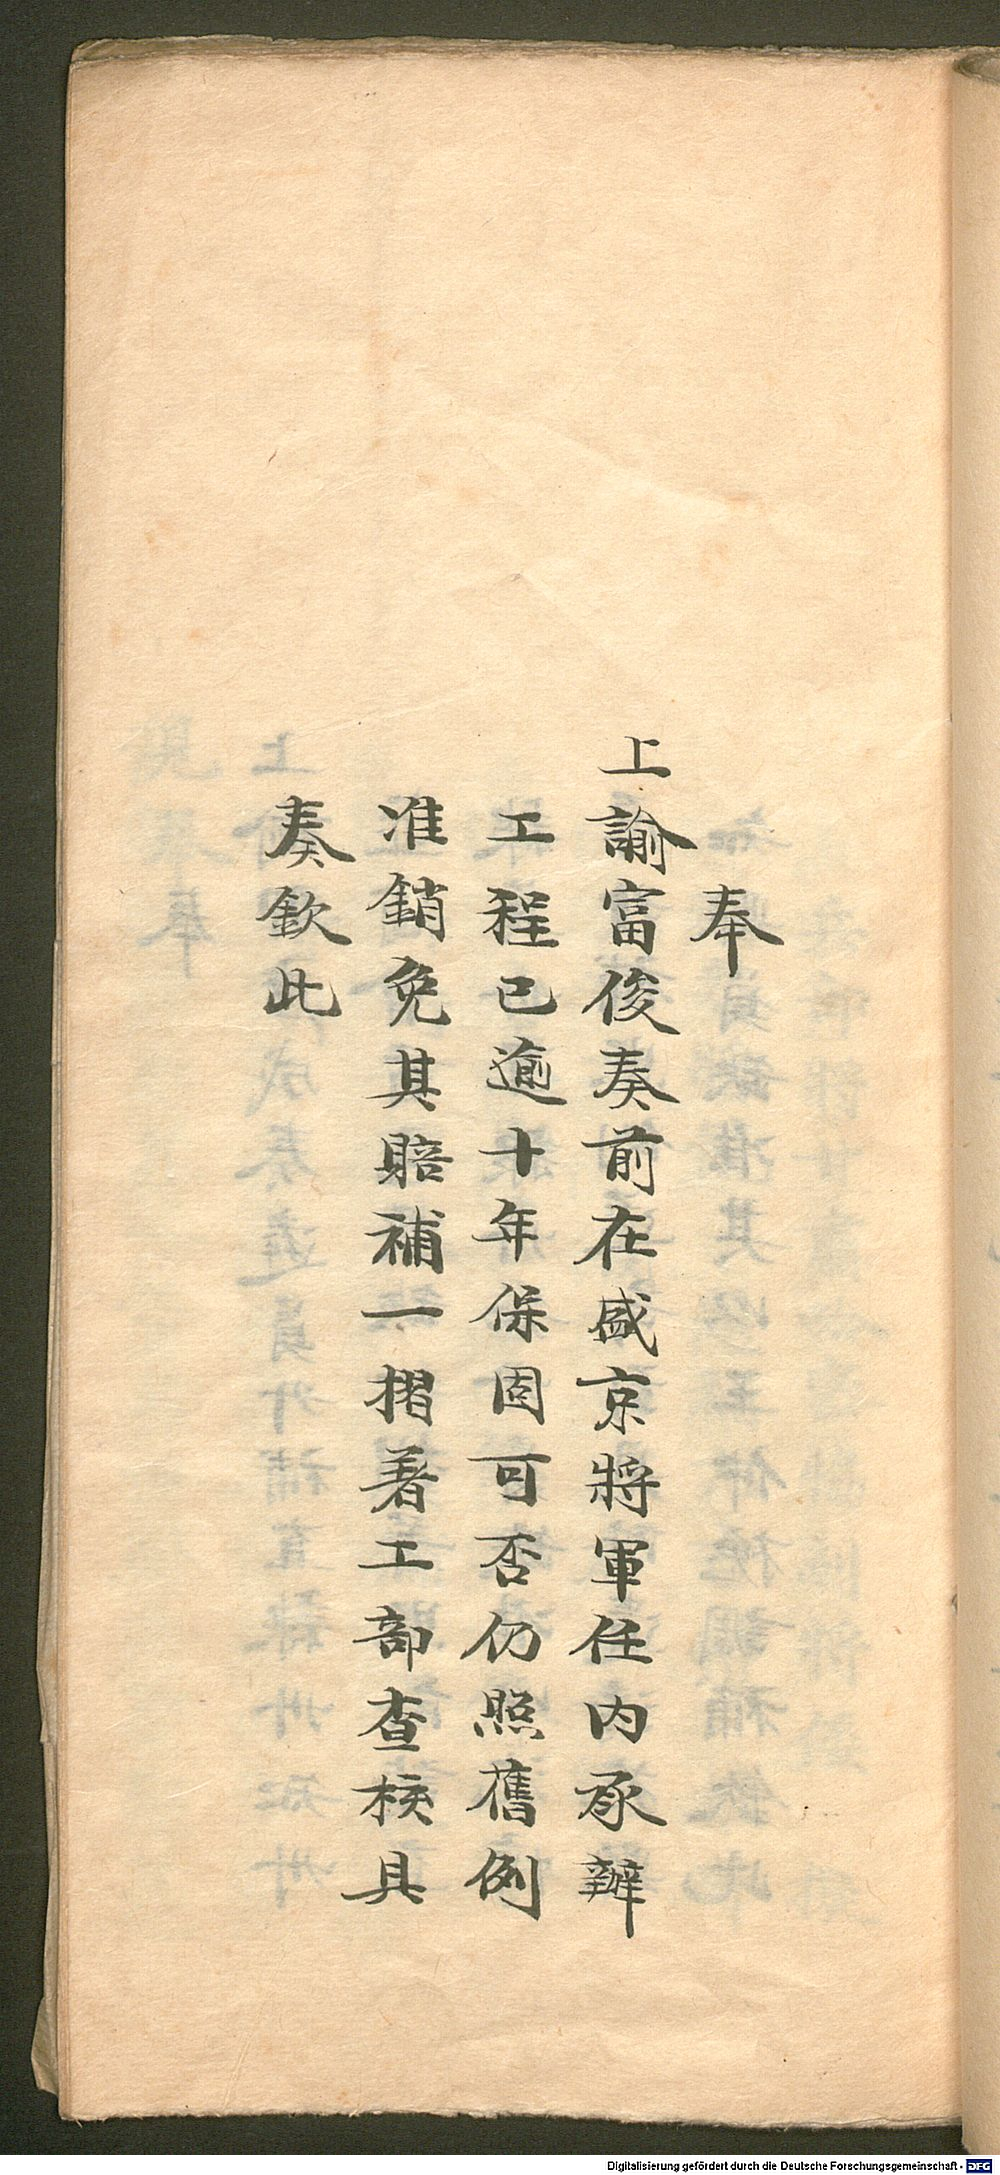 奉
上諭富俊奏前在盛京將軍任內承辦
工程已逾十年保固可否仍照舊例
准銷免其賠補一摺著工部查核具
奏欽此
Digitalisierung gefördert durch die Deutsche Forschungsgemeinschaft - DFG